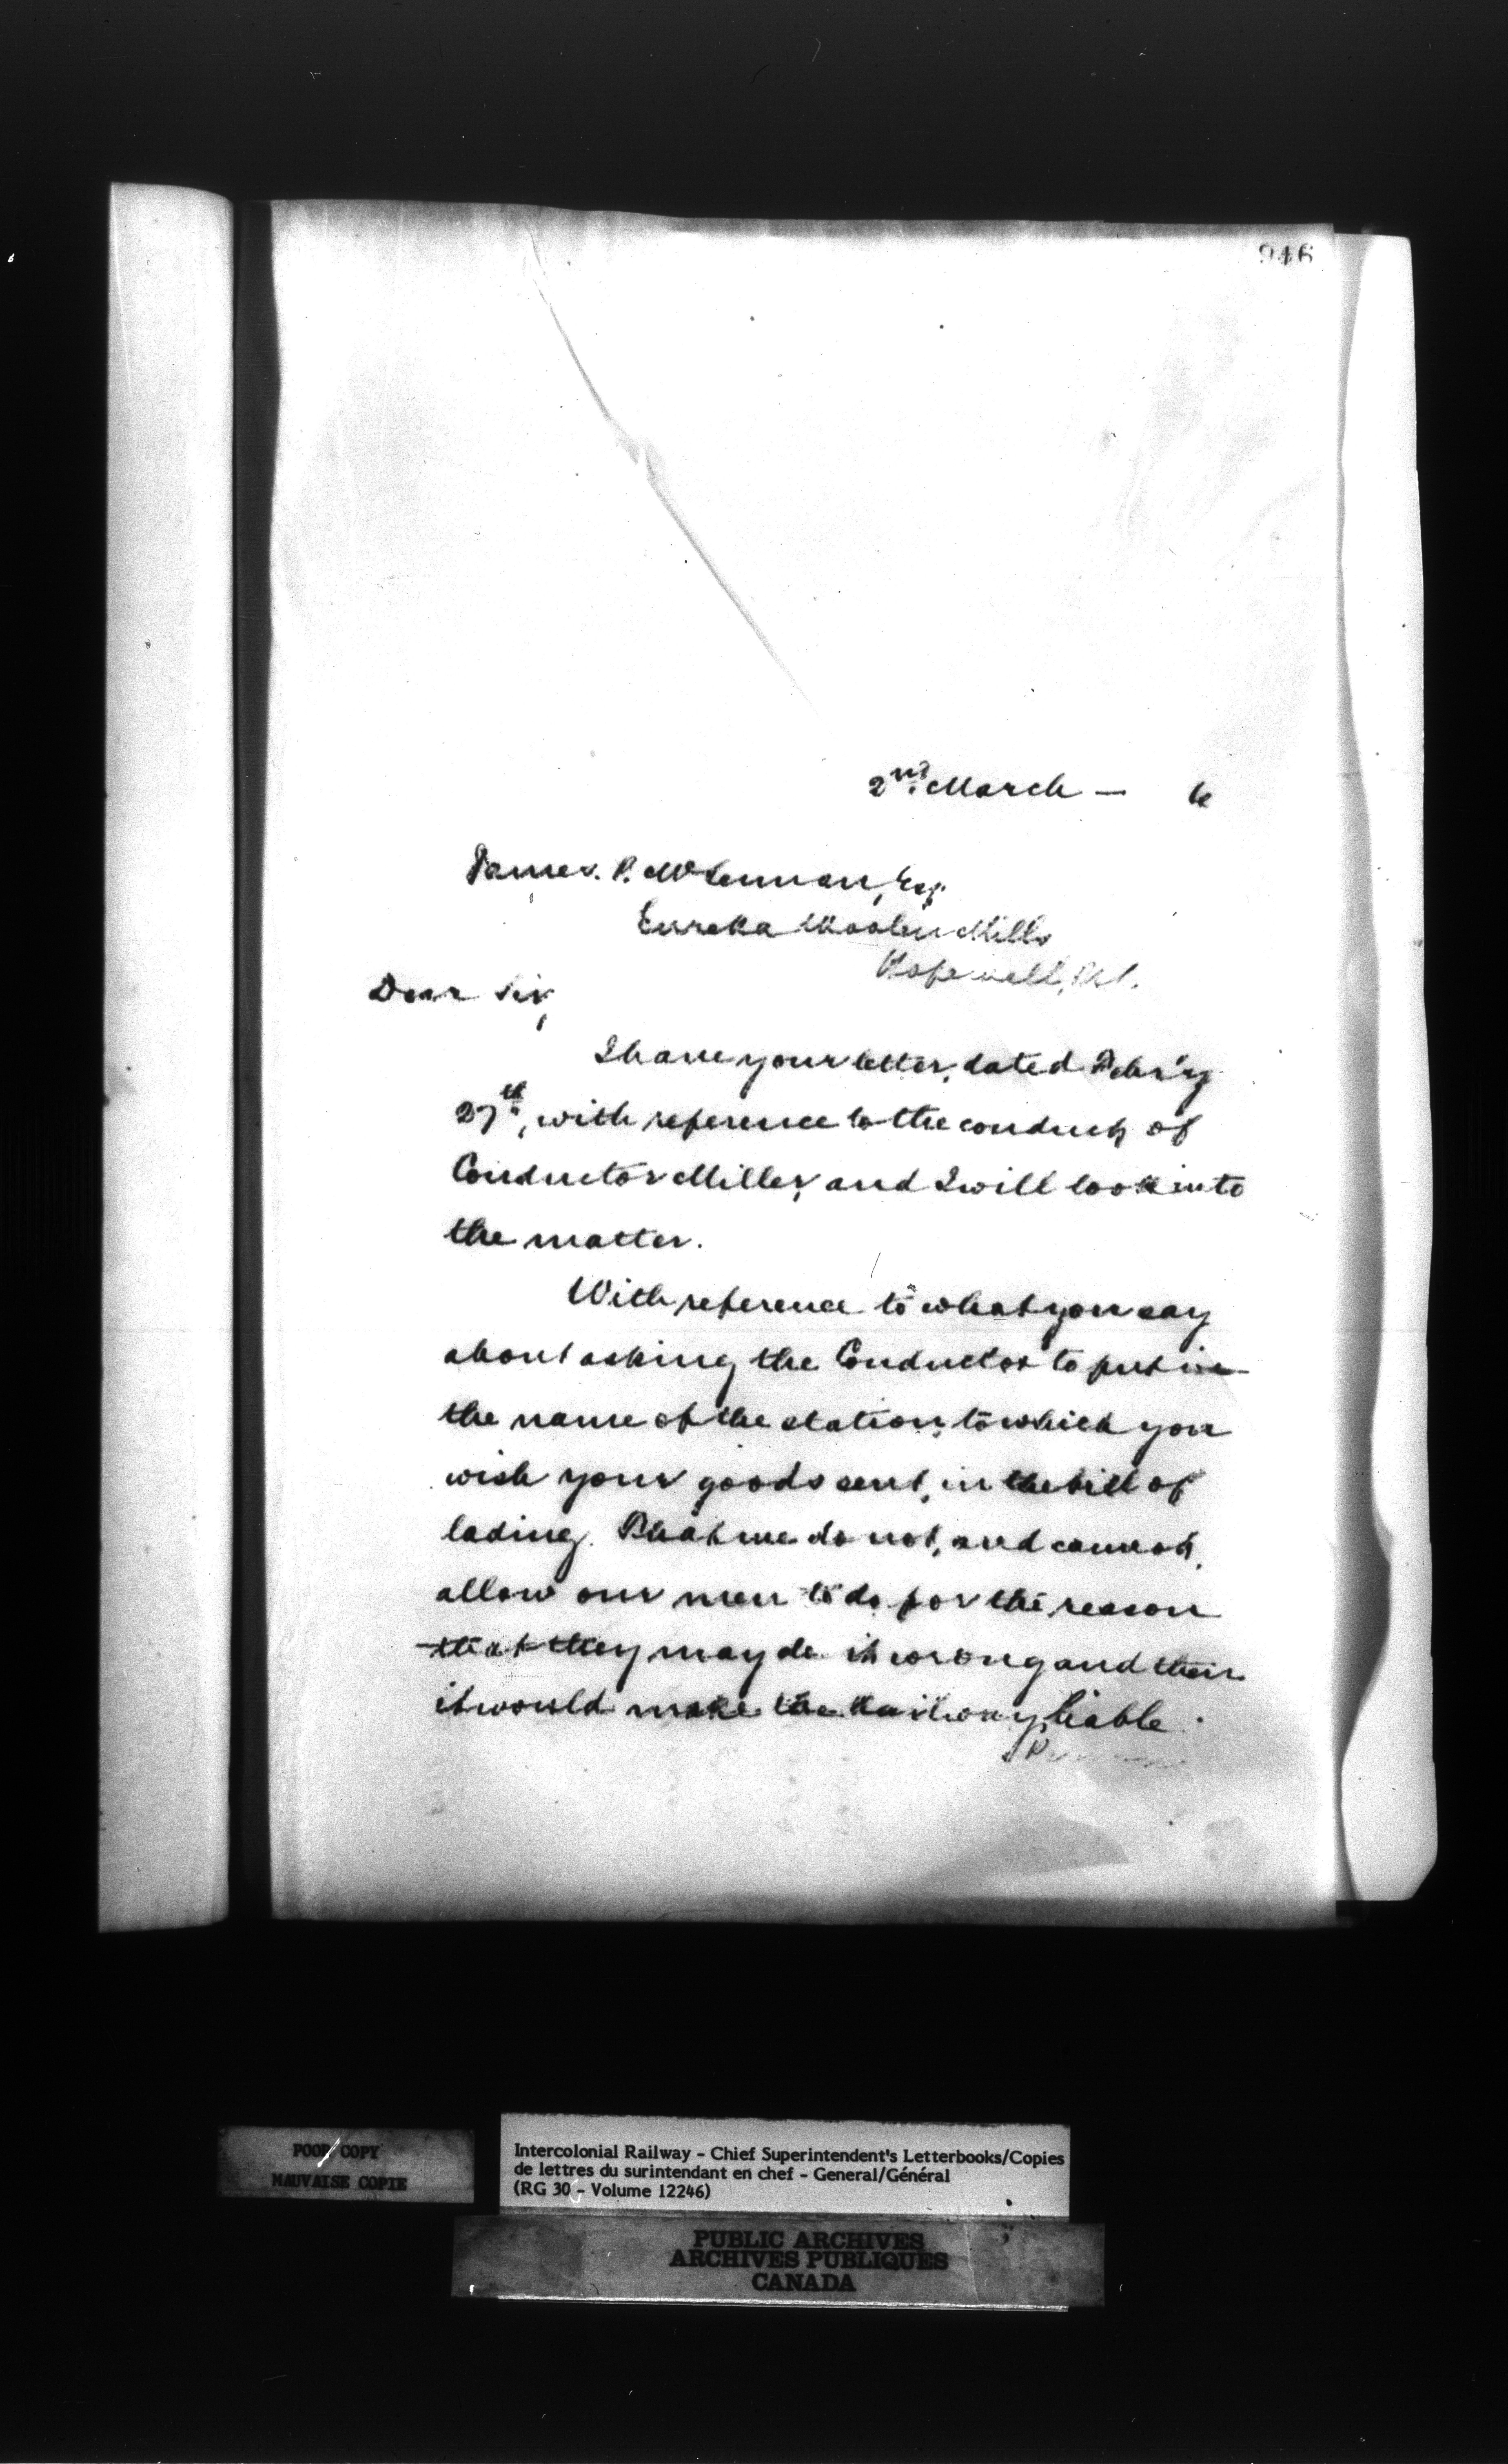 946
2nd. March — 6
James. P. McLennan, Esq.
Eureka Woolen Mills
Hopewell, N.S.
Dear Sir,
I have your letter, dated Feb'y
27th, with reference to the conduct of
Conductor Miller, and I will look into
the matter.
With reference to what you say
about asking the Conductor to put in
the name of the station, to which you
wish your goods sent, in the bill of
lading. That we do not, and cannot,
allow our men to do for the reason
that they may do it wrong and then
it would make the Railway liable.
POOR COPY
MAUVAISE COPIE
Intercolonial Railway - Chief Superintendent's Letterbooks/Copies
de lettres du surintendant en chef - General/Général
(RG 30 - Volume 12246)
PUBLIC ARCHIVES
ARCHIVES PUBLIQUES
CANADA